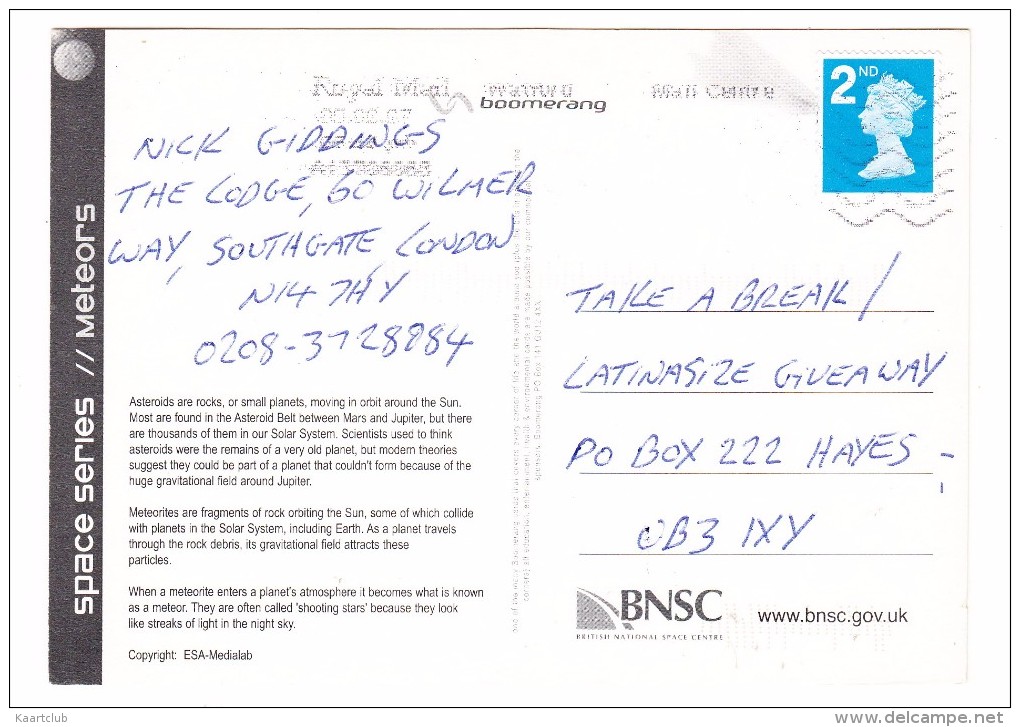 space series // Meteors
Royal Mail Watford Mail Centre
boomerang
2ND
NICK GIDDINGS
THE LODGE, 60 WILMER
WAY, SOUTHGATE, LONDON
N14 7HY
0208-3728884
Asteroids are rocks, or small planets, moving in orbit around the Sun.
Most are found in the Asteroid Belt between Mars and Jupiter, but there
are thousands of them in our Solar System. Scientists used to think
asteroids were the remains of a very old planet, but modern theories
suggest they could be part of a planet that couldn't form because of the
huge gravitational field around Jupiter.
Meteorites are fragments of rock orbiting the Sun, some of which collide
with planets in the Solar System, including Earth. As a planet travels
through the rock debris, its gravitational field attracts these
particles.
When a meteorite enters a planet's atmosphere it becomes what is known
as a meteor. They are often called 'shooting stars' because they look
like streaks of light in the night sky.
Copyright: ESA-Medialab
TAKE A BREAK/
LATINASIZE GIVEAWAY
PO BOX 222 HAYES -
UB3 1XY
BNSC
BRITISH NATIONAL SPACE CENTRE
www.bnsc.gov.uk
Kaartclub
delcampe.net